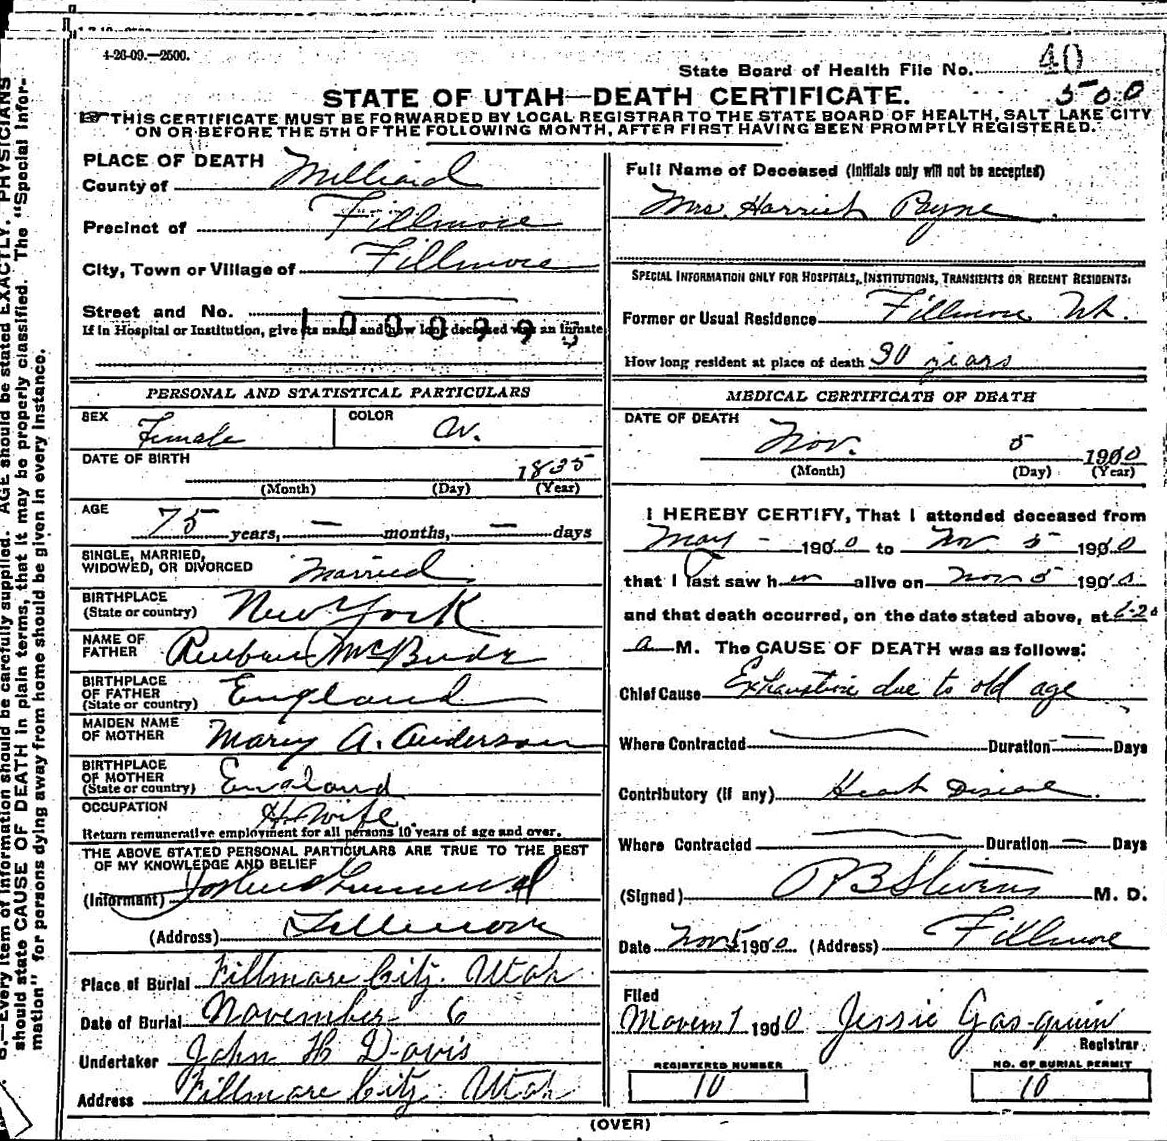 4-26-09.—2500.
State Board of Health File No. 40
500
STATE OF UTAH—DEATH CERTIFICATE.
☞THIS CERTIFICATE MUST BE FORWARDED BY LOCAL REGISTRAR TO THE STATE BOARD OF HEALTH, SALT LAKE CITY
ON OR BEFORE THE 5TH OF THE FOLLOWING MONTH, AFTER FIRST HAVING BEEN PROMPTLY REGISTERED.
PLACE OF DEATH
County of Millard
Precinct of Fillmore
City, Town or Village of Fillmore
Street and No.
If in Hospital or Institution, give its name and how long deceased was an inmate
Full Name of Deceased (Initials only will not be accepted)
Mrs. Harriet Payne
SPECIAL INFORMATION ONLY FOR HOSPITALS, INSTITUTIONS, TRANSIENTS OR RECENT RESIDENTS:
Former or Usual Residence Fillmore Ut.
How long resident at place of death 30 years
PERSONAL AND STATISTICAL PARTICULARS
SEX Female
COLOR W.
DATE OF BIRTH 1835
(Month) (Day) (Year)
AGE
75 years, — months, — days
SINGLE, MARRIED,
WIDOWED, OR DIVORCED Married
BIRTHPLACE
(State or country) New York
NAME OF
FATHER Reuben McBride
BIRTHPLACE
OF FATHER
(State or country) England
MAIDEN NAME
OF MOTHER Mary A. Anderson
BIRTHPLACE
OF MOTHER
(State or country) England
OCCUPATION H. Wife
Return remunerative employment for all persons 10 years of age and over.
THE ABOVE STATED PERSONAL PARTICULARS ARE TRUE TO THE BEST
OF MY KNOWLEDGE AND BELIEF
(Informant)
(Address) Fillmore
Place of Burial Fillmore City. Utah
Date of Burial November 6
Undertaker John H Davis
Address Fillmore City Utah
MEDICAL CERTIFICATE OF DEATH
DATE OF DEATH
Nov. 5 1910
(Month) (Day) (Year)
I HEREBY CERTIFY, That I attended deceased from
May - 1910 to Nov 5 1910
that I last saw her alive on Nov 5 1910
and that death occurred, on the date stated above, at
a M. The CAUSE OF DEATH was as follows:
Chief Cause Exhaustion due to old age
Where Contracted — Duration — Days
Contributory (if any) Heart Disease.
Where Contracted — Duration — Days
(Signed) Stevens M. D.
Date Nov 5 1910 (Address) Fillmore
Filed
1910 Jessie Gasquin
Registrar
REGISTERED NUMBER
10
NO. OF BURIAL PERMIT
10
(OVER)
B.—Every item of information should be carefully supplied. AGE should be stated EXACTLY. PHYSICIANS
should state CAUSE OF DEATH in plain terms, that it may be properly classified. The "Special Infor-
mation" for persons dying away from home should be given in every instance.